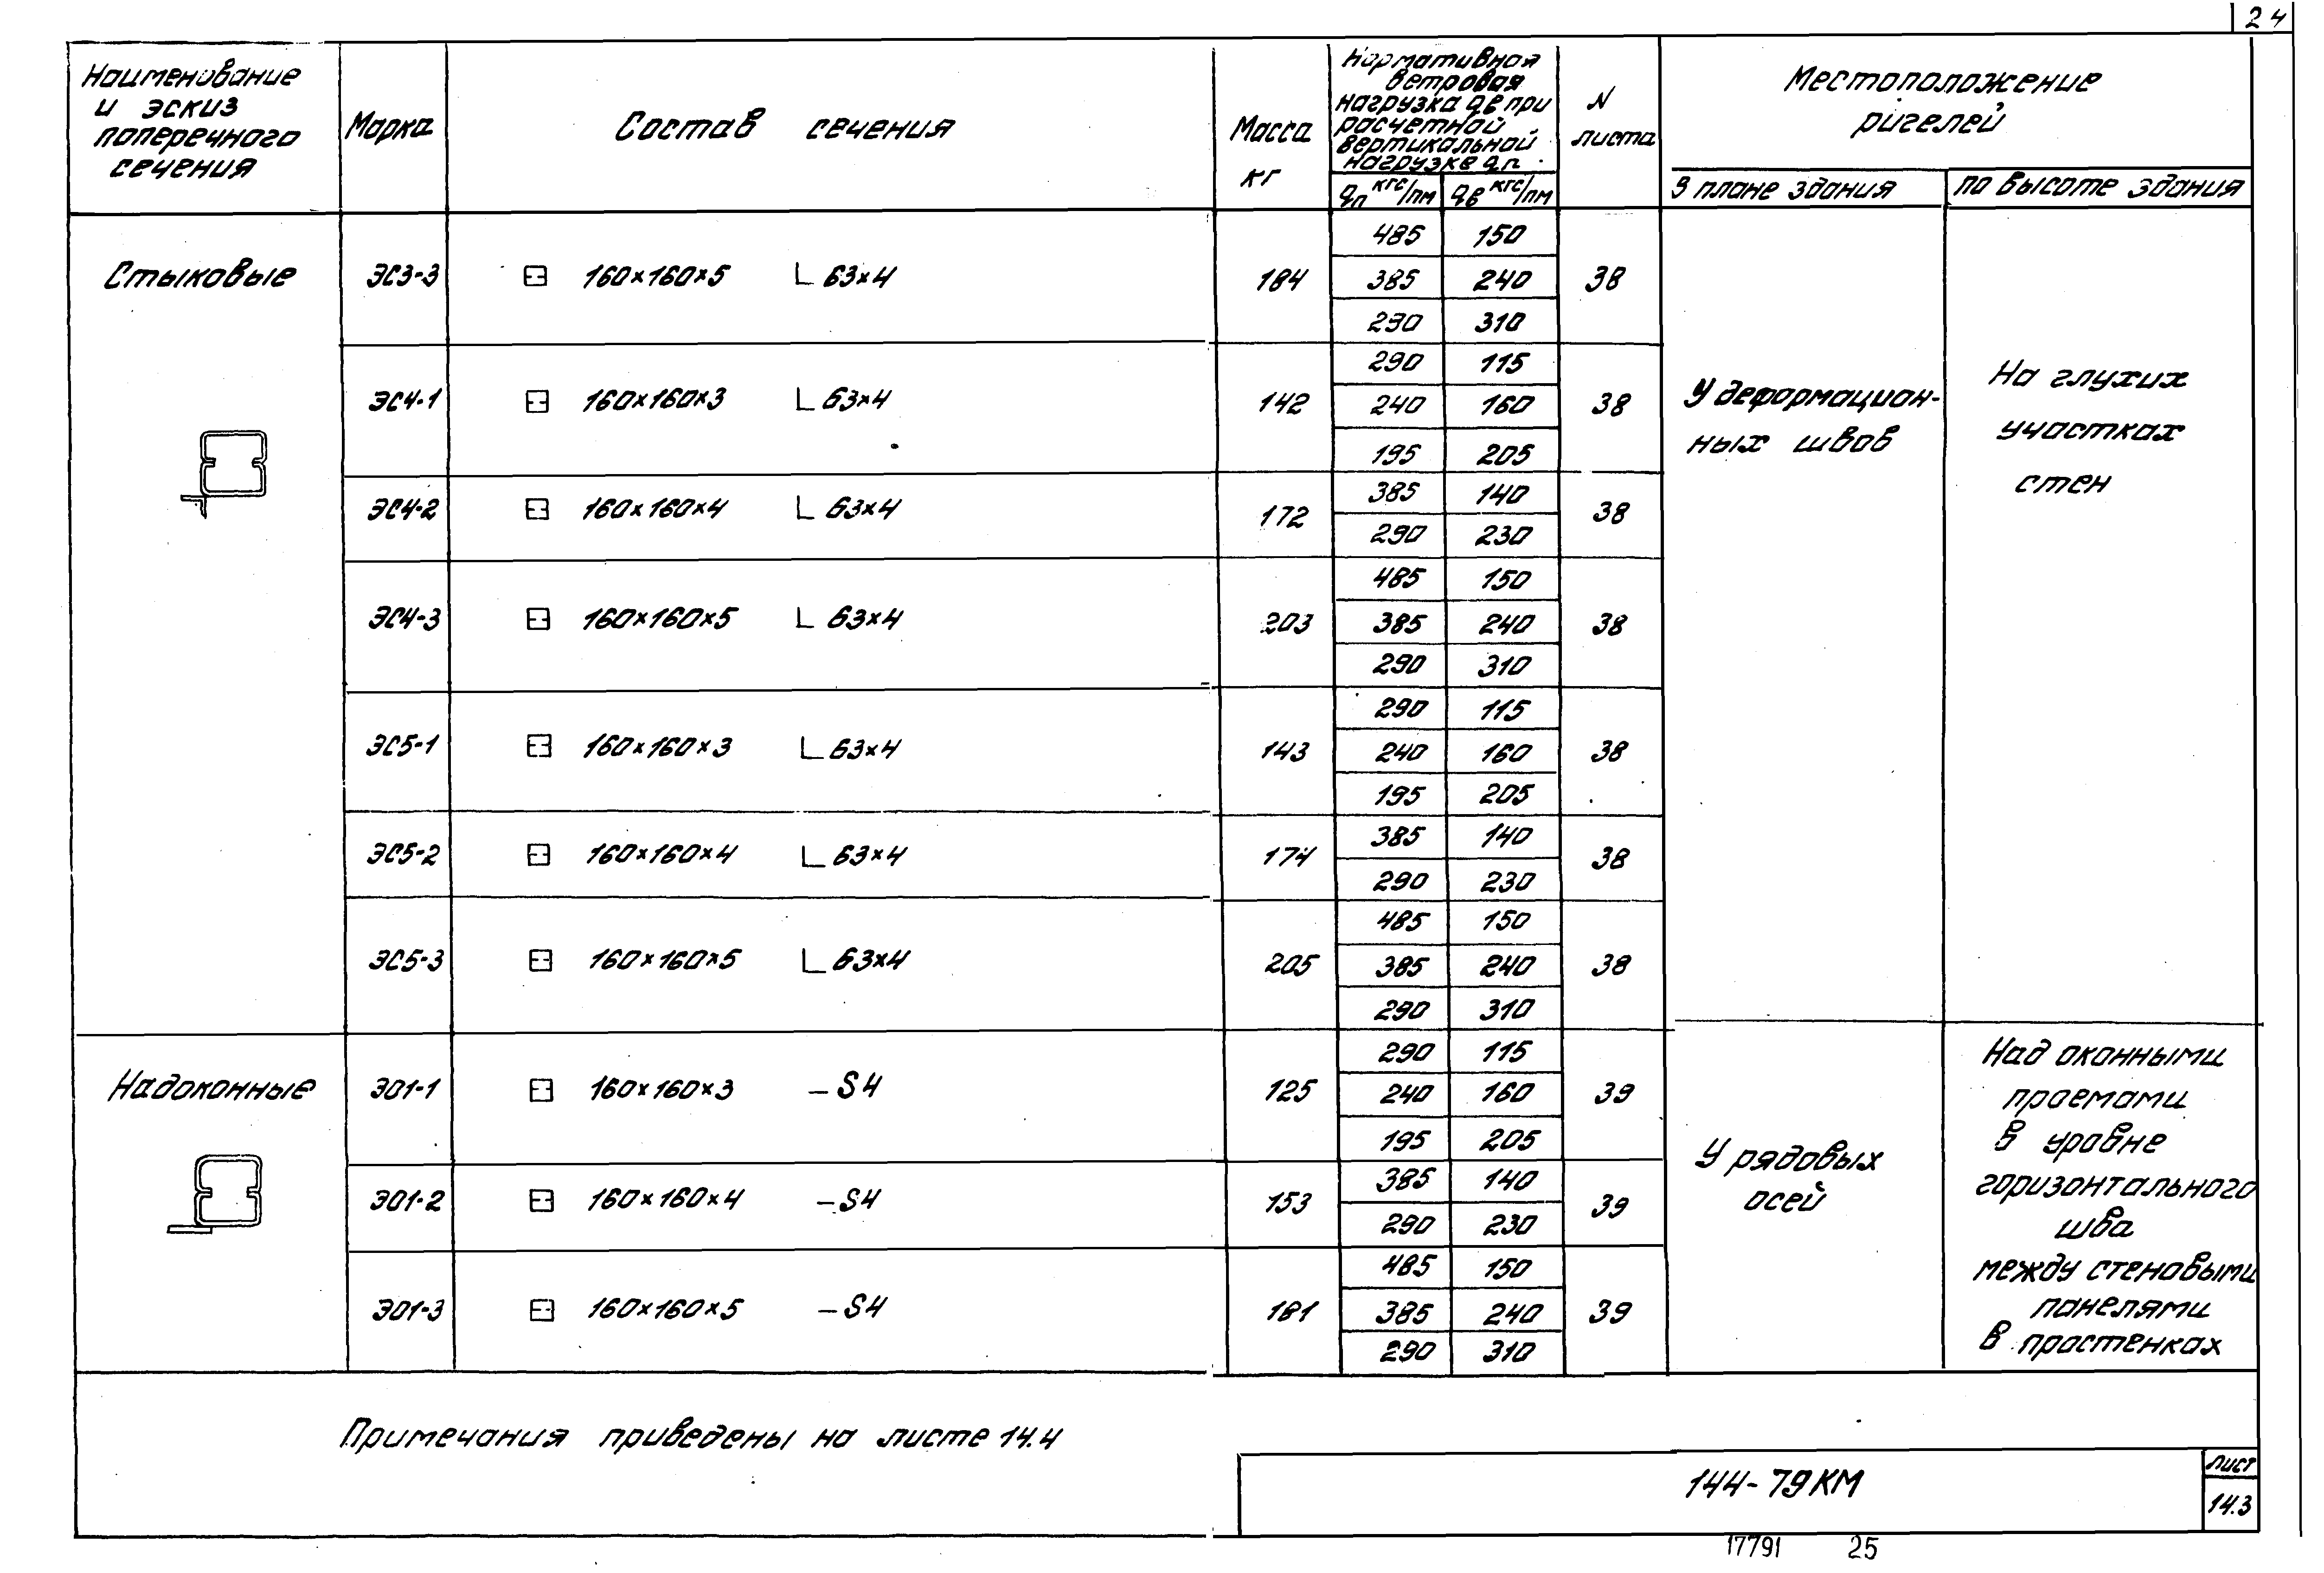 24
Наименование
и эскиз
поперечного
сечения
Марка
Состав сечения
Масса
кг
Нормативная
ветровая
нагрузка qв при
расчетной
вертикальной
нагрузке qп
qп кгс/пм
qв кгс/пм
N
листа
Местоположение
ригелей
В плане здания
по высоте здания
Стыковые
ЭС3-3 160×160×5 L 63×4 184 38
485 150
385 240
290 310
ЭС4-1 160×160×3 L 63×4 142 38
290 115
240 160
195 205
ЭС4-2 160×160×4 L 63×4 172 38
385 140
290 230
ЭС4-3 160×160×5 L 63×4 203 38
485 150
385 240
290 310
ЭС5-1 160×160×3 L 63×4 143 38
290 115
240 160
195 205
ЭС5-2 160×160×4 L 63×4 174 38
385 140
290 230
ЭС5-3 160×160×5 L 63×4 205 38
485 150
385 240
290 310
У деформацион-
ных швов
На глухих
участках
стен
Надоконные
ЭО1-1 160×160×3 –S4 125 39
290 115
240 160
195 205
ЭО1-2 160×160×4 –S4 153 39
385 140
290 230
ЭО1-3 160×160×5 –S4 181 39
485 150
385 240
290 310
У рядовых
осей
Над оконными
проемами
в уровне
горизонтального
шва
между стеновыми
панелями
в простенках
Примечания приведены на листе 14.4
144-79КМ
лист
14.3
17791 25